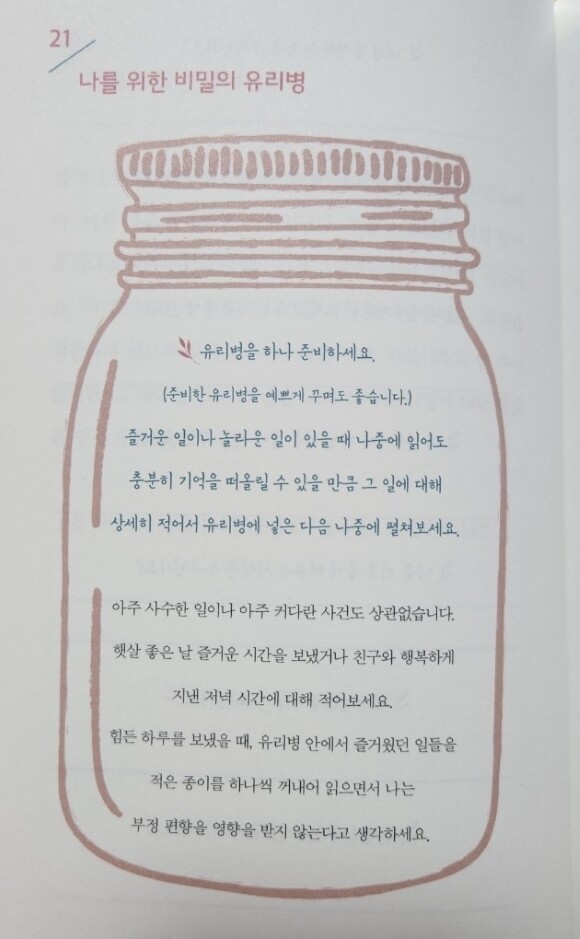 21
나를 위한 비밀의 유리병
유리병을 하나 준비하세요.
(준비한 유리병을 예쁘게 꾸며도 좋습니다.)
즐거운 일이나 놀라운 일이 있을 때 나중에 읽어도
충분히 기억을 떠올릴 수 있을 만큼 그 일에 대해
상세히 적어서 유리병에 넣은 다음 나중에 펼쳐보세요.
아주 사수한 일이나 아주 커다란 사건도 상관없습니다.
햇살 좋은 날 즐거운 시간을 보냈거나 친구와 행복하게
지낸 저녁 시간에 대해 적어보세요.
힘든 하루를 보냈을 때, 유리병 안에서 즐거웠던 일들을
적은 종이를 하나씩 꺼내어 읽으면서 나는
부정 편향을 영향을 받지 않는다고 생각하세요.